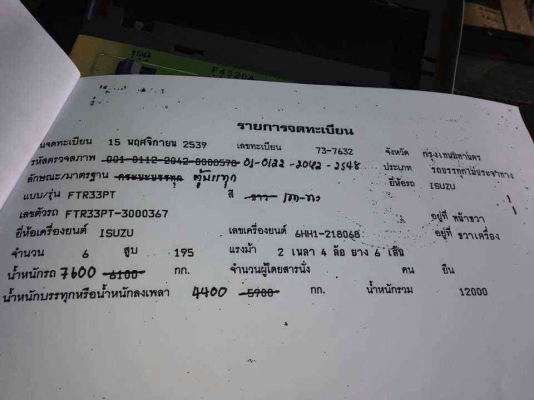 F4320A
รายการจดทะเบียน
นจดทะเบียน 15 พฤศจิกายน 2539 เลขทะเบียน 73-7632 จังหวัด กรุงเทพมหานคร
รหัสตรวจสภาพ 001-0112-2042-0000570 01-0122-2042-2548 ประเภท รถบรรทุกไม่ประจำทาง
ลักษณะ/มาตรฐาน กระบะบรรทุก ตู้บรรทุก ยี่ห้อรถ ISUZU
แบบ/รุ่น FTR33PT สี ขาว
เลขตัวรถ FTR33PT-3000367 อยู่ที่ หน้าขวา
ยี่ห้อเครื่องยนต์ ISUZU เลขเครื่องยนต์ 6HH1-218068 อยู่ที่ ขวาเครื่อง
จำนวน 6 สูบ 195 แรงม้า 2 เพลา 4 ล้อ ยาง 6 เส้น
น้ำหนักรถ 7600 6100 กก. จำนวนผู้โดยสารนั่ง คน ยืน
น้ำหนักบรรทุกหรือน้ำหนักลงเพลา 4400 5900 กก. น้ำหนักรวม 12000